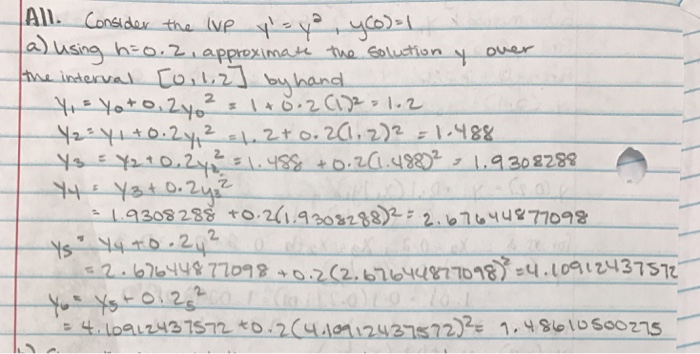 A11. Consider the IVP y' = y², y(0)=1
a) Using h=0.2, approximate the solution y over
the interval [0,1.2] by hand
y₁ = y₀+0.2y₀² = 1+0.2(1)² = 1.2
y₂ = y₁+0.2y₁² = 1.2+0.2(1.2)2 = 1.488
y₃ = y₂+0.2y₂² = 1.488 +0.2(1.488)² = 1.9308288
y₄ = y₃+0.2y₃²
= 1.9308288 +0.2(1.9308288)2 = 2.67644877098
y₅ = y₄+0.2₄²
= 2.67644877098 +0.2(2.67644877098)² = 4.10912437572
y₆ = y₅+0.2₅²
= 4.10912437572 +0.2(4.10912437572)² = 7.48610500275